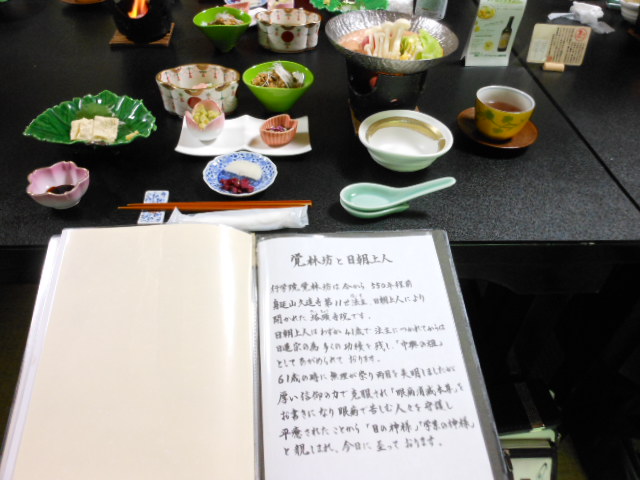 覚林坊と日朝上人
行学院覚林坊は今から550年程前
身延山久遠寺第11世法主 日朝上人により
開かれた 宿坊寺院です。
日朝上人はわずか41歳で法主につかれてからは
日蓮宗の為 多くの功績を残し、「中興の祖」
としてあがめられております。
61歳の時に無理が祟り両目を失明しましたが
厚い信仰の力で克服され「眼病消滅本尊」を
お書きになり眼病で苦しむ人々を守護し
平癒されたことから「目の神様」「学業の神様」
と親しまれ、今日に至っております。